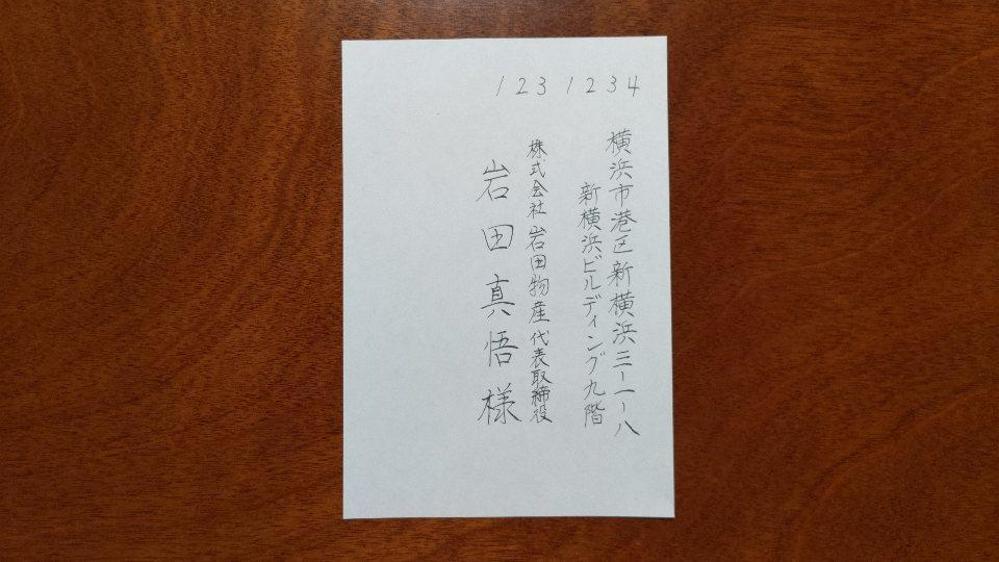 123 1234
横浜市港区新横浜三ー一ー八
新横浜ビルディング九階
株式会社岩田物産 代表取締役
岩田真悟様